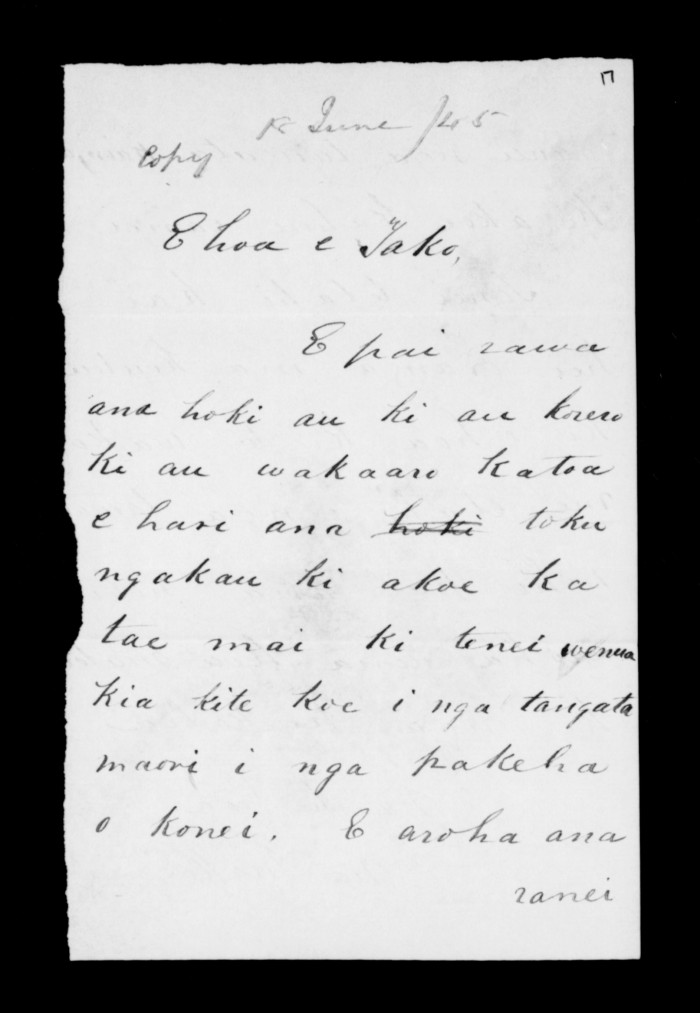 June /45
Copy
E hoa e Tako,
E pai rawa
ana hoki au ki au korero
ki au wakaaro katoa
e hari ana hoki toku
ngakau ki akoe ka
tae mai ki tenei wenua
kia kite koe i nga tangata
maori i nga pakeha
o konei. E aroha ana
ranei